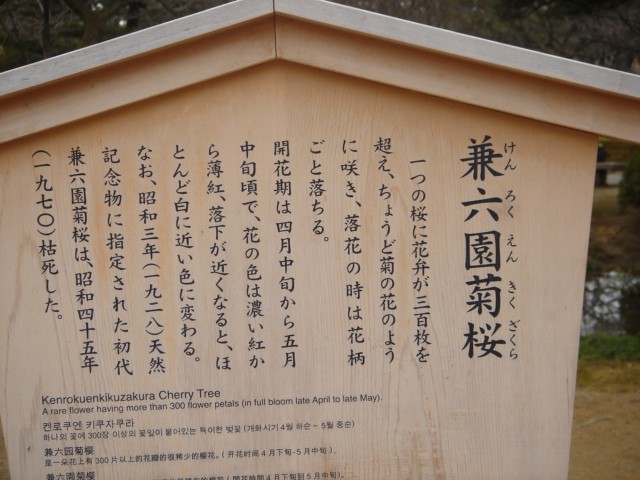 兼六園菊桜
けん ろく えん きく ざくら
一つの桜に花弁が三百枚を
超え、ちょうど菊の花のよう
に咲き、落花の時は花柄
ごと落ちる。
開花期は四月中旬から五月
中旬頃で、花の色は濃い紅か
ら薄紅、落下が近くなると、ほ
とんど白に近い色に変わる。
なお、昭和三年(一九二八)天然
記念物に指定された初代
兼六園菊桜は、昭和四十五年
(一九七〇)枯死した。
Kenrokuenkikuzakura Cherry Tree
A rare flower having more than 300 flower petals (in full bloom late April to late May).
켄로쿠엔 키쿠자쿠라
하나의 꽃에 300장 이상의 꽃잎이 붙어있는 특이한 벚꽃 (개화시기 4월 하순 ~ 5월 중순)
兼六园菊樱
是一朵花上有300片以上的花瓣的很稀少的樱花。(开花时间4月下旬-5月中旬)
兼六園菊櫻